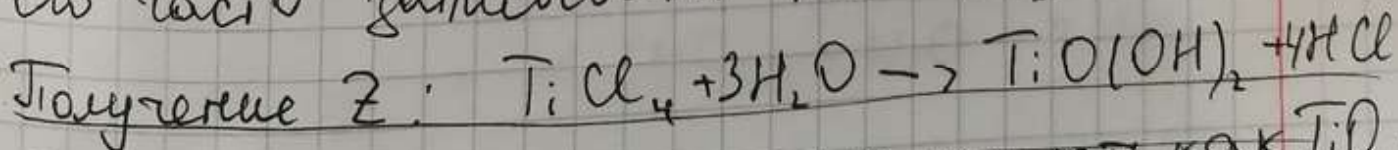 Получение Z: TiCl₄ + 3H₂O -> TiO(OH)₂ + 4HCl
как TiO